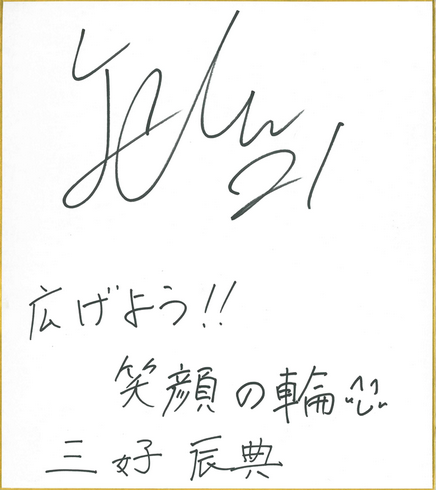 21
広げよう!!
笑顔の輪
三好 辰典